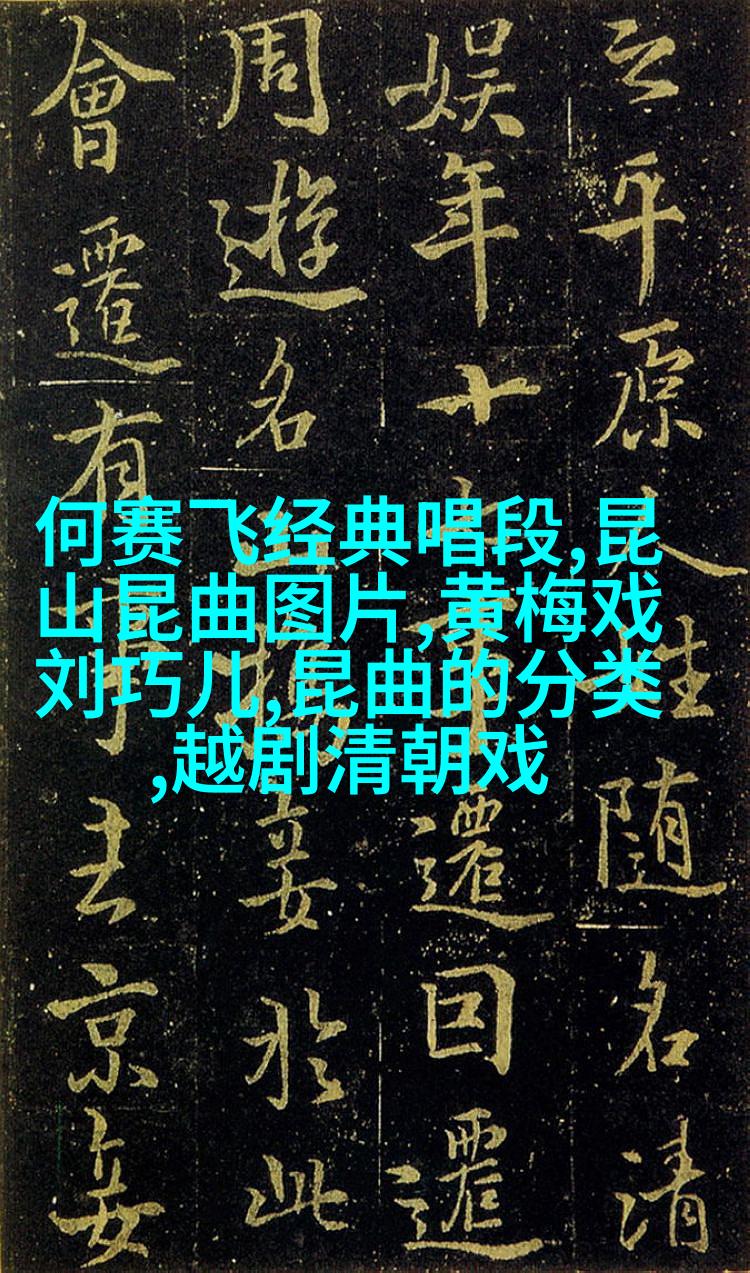 之平原人姓随名清
娱年十七事遷囙遷
周遊名山携妾於此
會遷有事去京妾
何赛飞经典唱段,昆
山昆曲图片,黄梅戏
刘巧儿,昆曲的分类
,越剧清朝戏